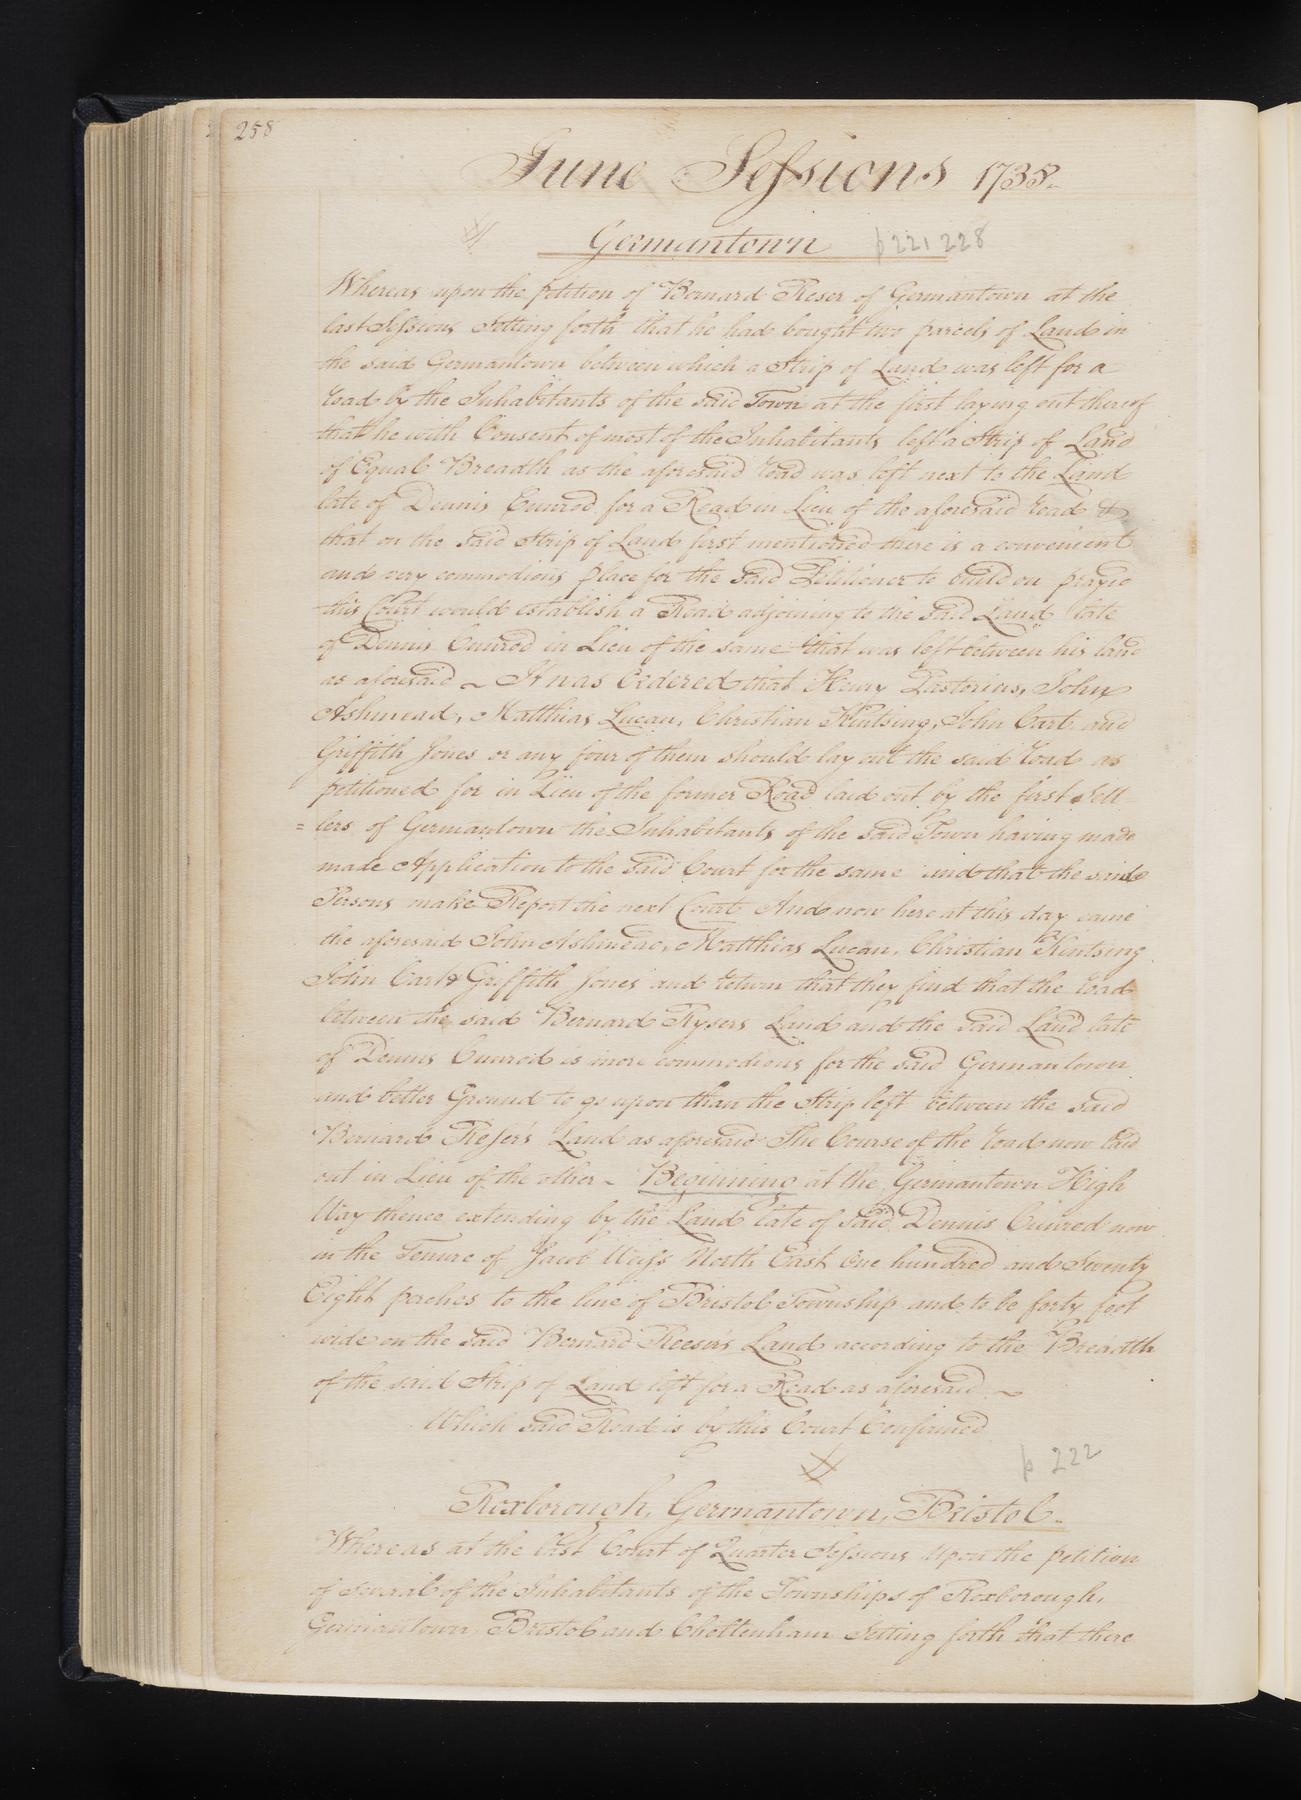 258
June Sessions 1735.
Germantown p 221 228
Whereas upon the petition of Bernard Reser of Germantown at the
last Sessions Setting forth that he had bought two parcels of Land in
the said Germantown between which a Strip of Land was left for a
road by the Inhabitants of the said Town at the first laying out thereof
that he with Consent of most of the Inhabitants left a Strip of Land
of Equal Breadth as the aforesaid road was left next to the Land
late of Dennis Cunred for a Road in Lieu of the aforesaid road &
that on the said Strip of Land first mentioned there is a convenient
and very commodious place for the said Petitioner to build on prayed
this Court would establish a Road adjoining to the said Land late
of Dennis Cunred in Lieu of the same that was left between his land
as aforesaid ~ It was Ordered that Henry Pastorius, John
Ashmead, Matthias Lucan, Christian Kintsing, John Carl and
Griffith Jones or any four of them should lay out the said road as
petitioned for in Lieu of the former Road laid out by the first Sett=
=lers of Germantown the Inhabitants of the said Town having made
made Application to the said Court for the same and that the said
Persons make Report the next Court And now here at this day came
the aforesaid John Ashmead, Matthias Lucan, Christian Kintsing
John Carl & Griffith Jones and return that they find that the road
between the said Bernard Rysers Land and the said Land late
of Dennis Cunred is more commodious for the said Germantown
and better Ground to go upon than the Strip left between the said
Bernard Reser's Land as aforesaid The Course of the road now laid
out in Lieu of the other ~ Beginning at the Germantown High
Way thence extending by the Land late of said Dennis Cunred now
in the Tenure of Jacob Weiss North East One hundred and Seventy
Eight perches to the line of Bristol Township and to be forty foot
wide on the said Bernard Reeser's Land according to the Breadth
of the said Strip of Land left for a Road as aforesaid ~
Which said Road is by this Court Confirmed
p 222
Roxborough, Germantown, Bristol.
Whereas at the last Court of Quarter Sessions Upon the petition
of several of the Inhabitants of the Townships of Roxborough,
Germantown, Bristol and Cheltenham Setting forth that there